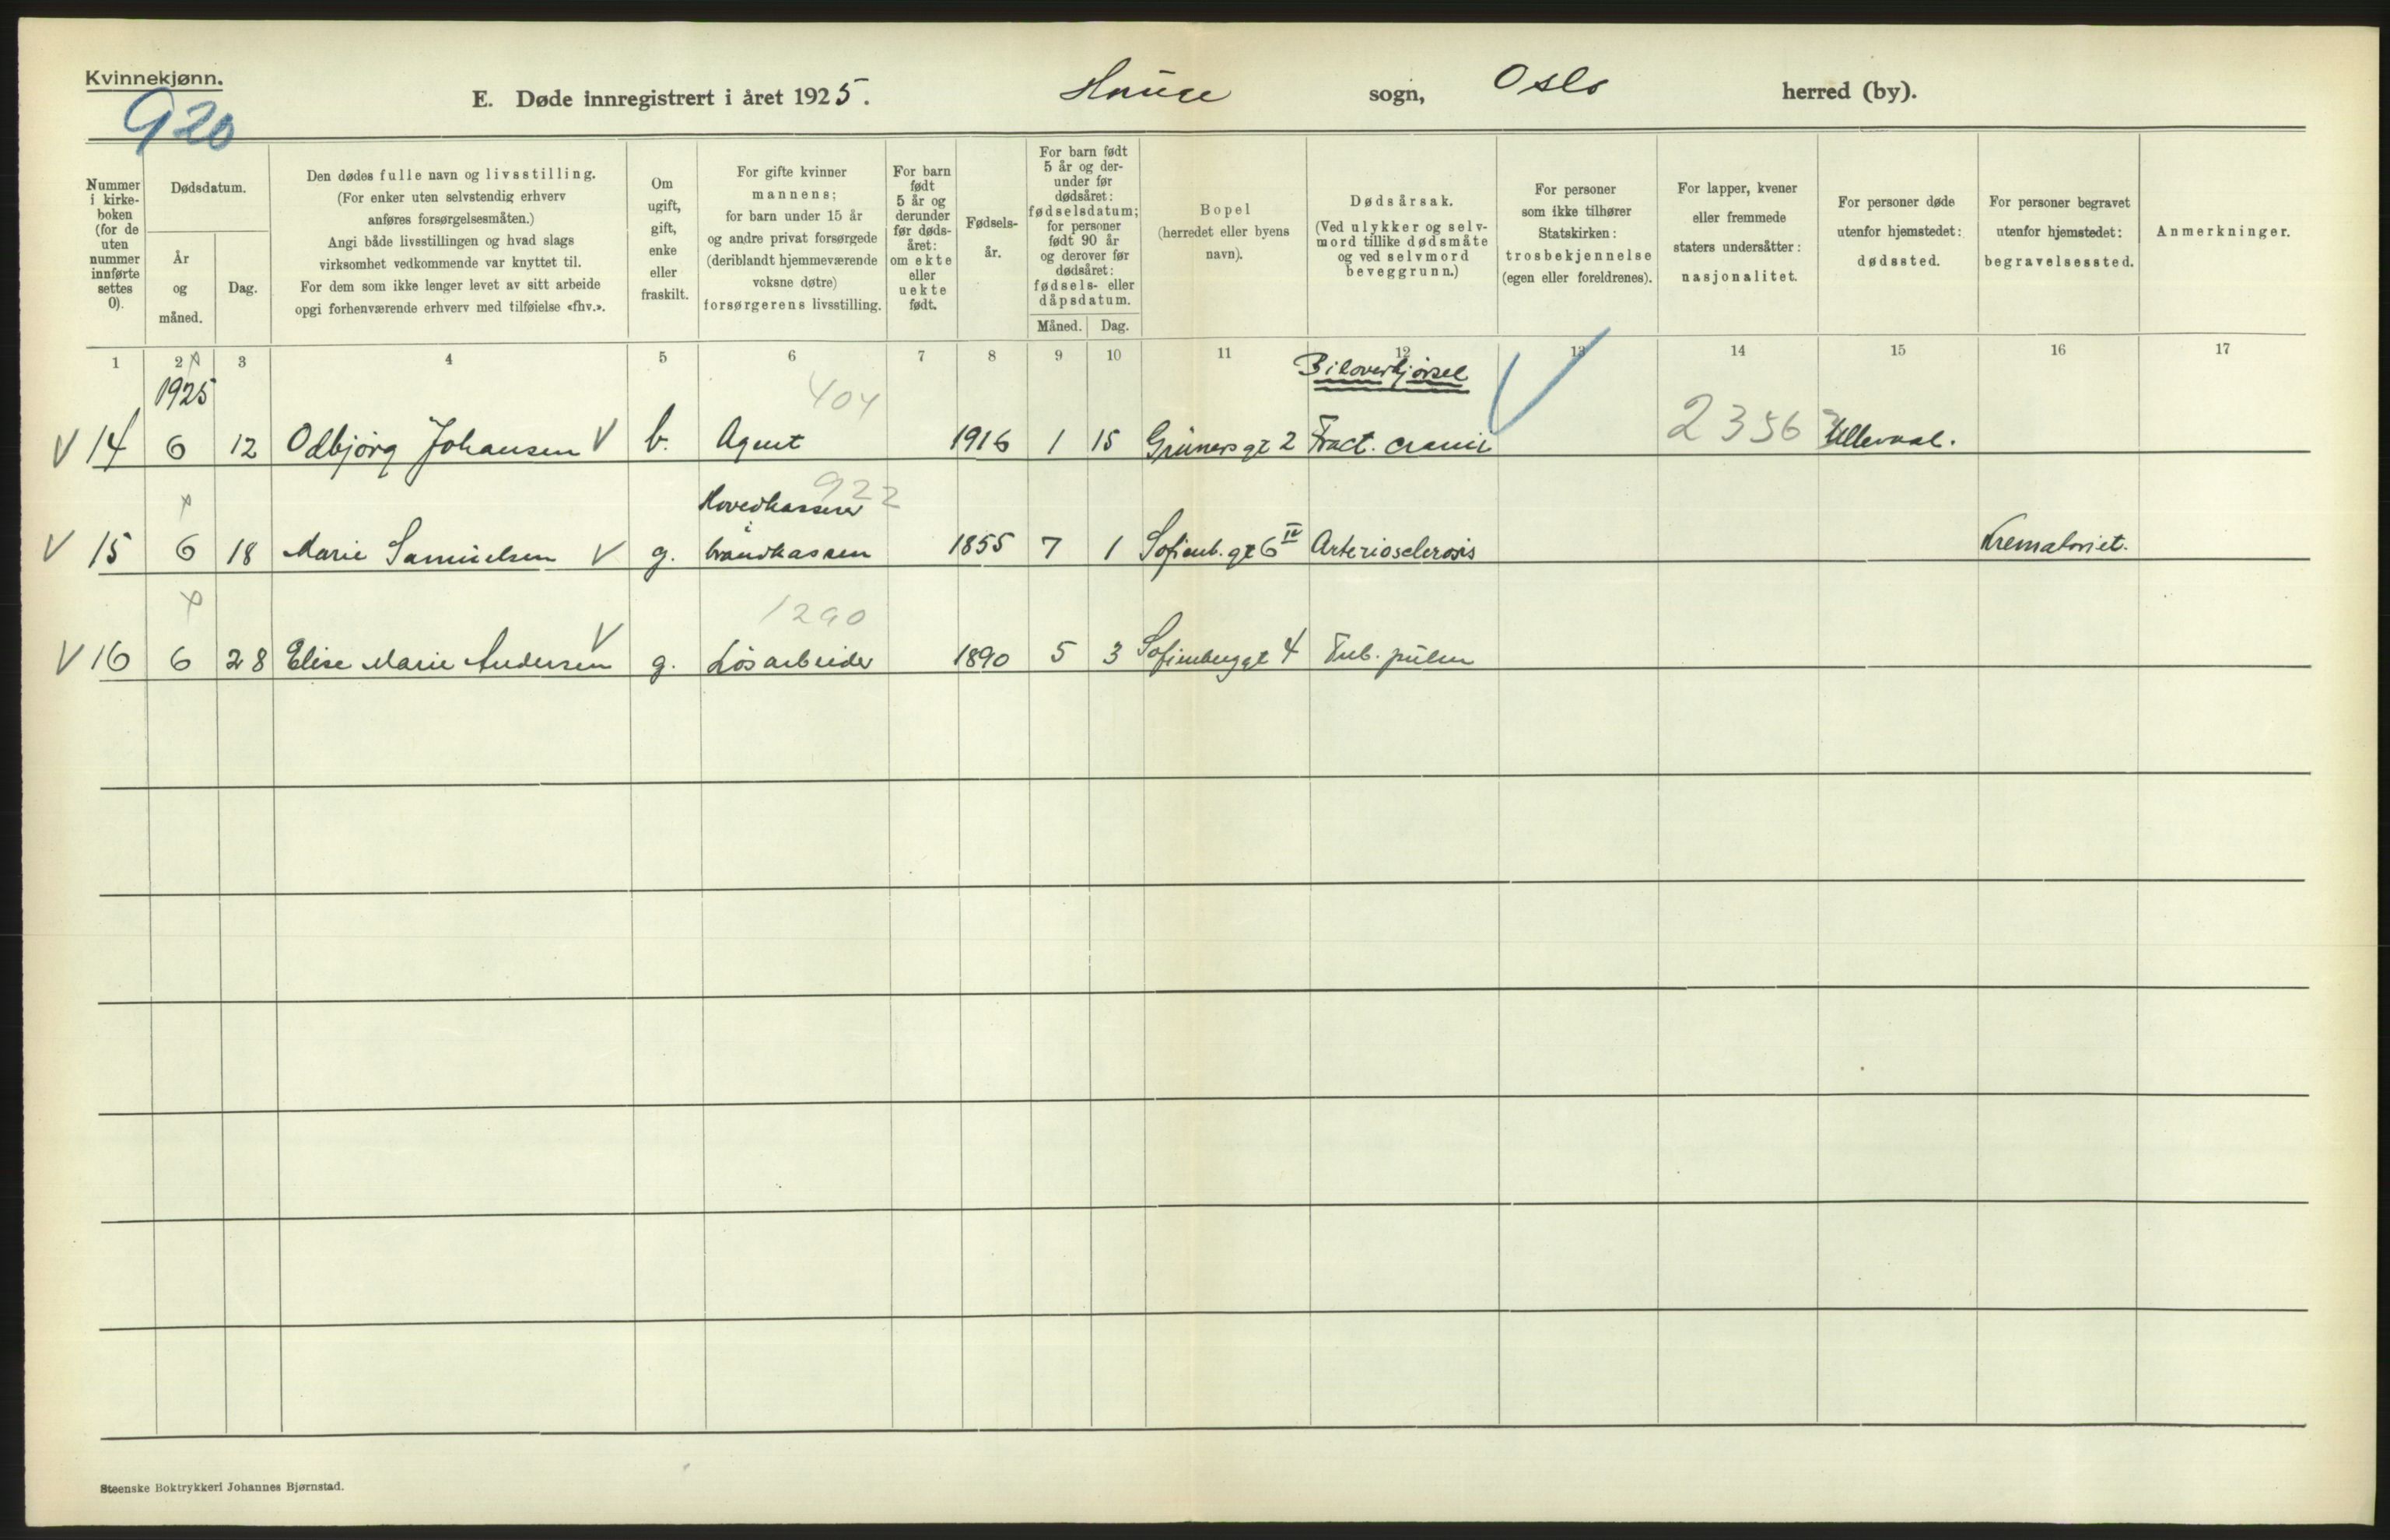 Kvinnekjønn.
920
E. Døde innregistrert i året 1925.
sogn, Oslo herred (by).
Nummer i kirke- boken (for de uten nummer innførte settes 0).
Dødsdatum.
År og måned.
Dag.
Den dødes fulle navn og livsstilling.
(For enker uten selvstendig erhverv
anføres forsørgelsesmåten.)
Angi både livsstillingen og hvad slags
virksomhet vedkommende var knyttet til.
For dem som ikke lenger levet av sitt arbeide
opgi forhenværende erhverv med tilføielse «fhv.».
Om ugift, gift, enke eller fraskilt.
For gifte kvinner
mannens;
for barn under 15 år
og andre privat forsørgede
(deriblandt hjemmeværende
voksne døtre)
forsørgerens livsstilling.
For barn født 5 år og derunder før døds- året: om ekte eller uekte født.
Fødsels- år.
For barn født
5 år og der-
under før
dødsåret:
fødselsdatum;
for personer
født 90 år
og derover før
dødsåret:
fødsels- eller
dåpsdatum.
Måned. Dag.
Bopel
(herredet eller byens
navn).
Dødsårsak.
(Ved ulykker og selv-
mord tillike dødsmåte
og ved selvmord
beveggrunn.)
For personer
som ikke tilhører
Statskirken:
trosbekjennelse
(egen eller foreldrenes).
For lapper, kvener
eller fremmede
staters undersåtter:
nasjonalitet.
For personer døde
utenfor hjemstedet:
dødssted.
For personer begravet
utenfor hjemstedet:
begravelsessted.
Anmerkninger.
1 2 3 4 5 6 7 8 9 10 11 12 13 14 15 16 17
1925 404 Biloverkjørsel
14 6 12 Odbjörg Johansen b. Agent 1916 1 15 Grüners gt 2 Fract. cranii 2356 Ullevaal.
922
Hovedkasserer
i
15 6 18 Marie Samuelsen g. brandkassen 1855 7 1 Sofienb. gt 6 IV Arteriosclerosis Krematoriet.
1290
16 6 28 Elise Marie Andersen g. Lösarbeider 1890 5 3 Sofienberggt 4 Tub. pulm
Steenske Boktrykkeri Johannes Bjørnstad.